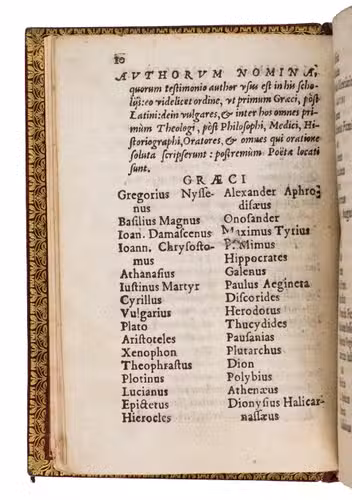 10
AVTHORVM NOMINA,
quorum testimonio author vsus est in his scho-
lijs: eo videlicet ordine, vt primum Græci, pòst
Latini: dein vulgares, & inter hos omnes pri-
mùm Theologi, pòst Philosophi, Medici, Hi-
storiographi, Oratores, & omnes qui oratione
soluta scripserunt: postremùm Poëtæ locati
sunt.
GRÆCI
Gregorius Nysse-
nus
Basilius Magnus
Ioan. Damascenus
Ioann. Chrysosto-
mus
Athanasius
Iustinus Martyr
Cyrillus
Vulgarius
Plato
Aristoteles
Xenophon
Theophrastus
Plotinus
Lucianus
Epictetus
Hierocles
Alexander Aphro
disæus
Onosander
Maximus Tyrius
P. Mimus
Hippocrates
Galenus
Paulus Aegineta
Discorides
Herodotus
Thucydides
Pausanias
Plutarchus
Dion
Polybius
Athenæus
Dionysius Halicar-
nassæus